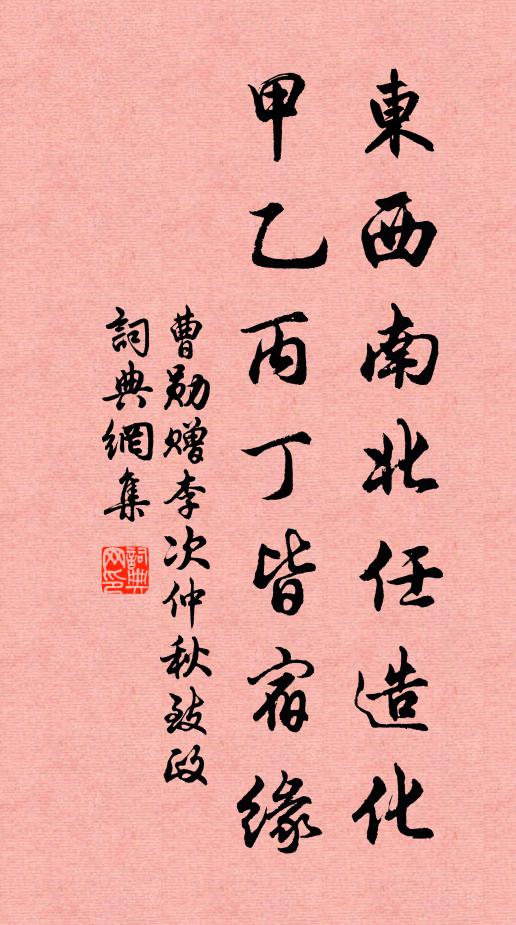 東西南北任造化
甲乙丙丁皆宿緣
曹勛贈李次仲秋致政
詞典網集
詞典网印